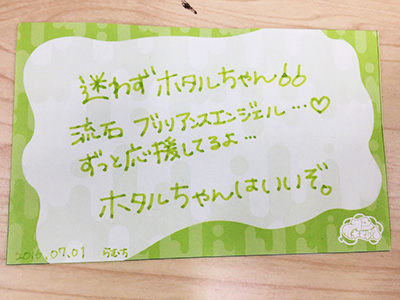 迷わずホタルちゃん!!
流石 ブリリアンスエンジェル…♡
ずっと応援してるよ…
ホタルちゃんはいいぞ。
2016.07.01 らむち